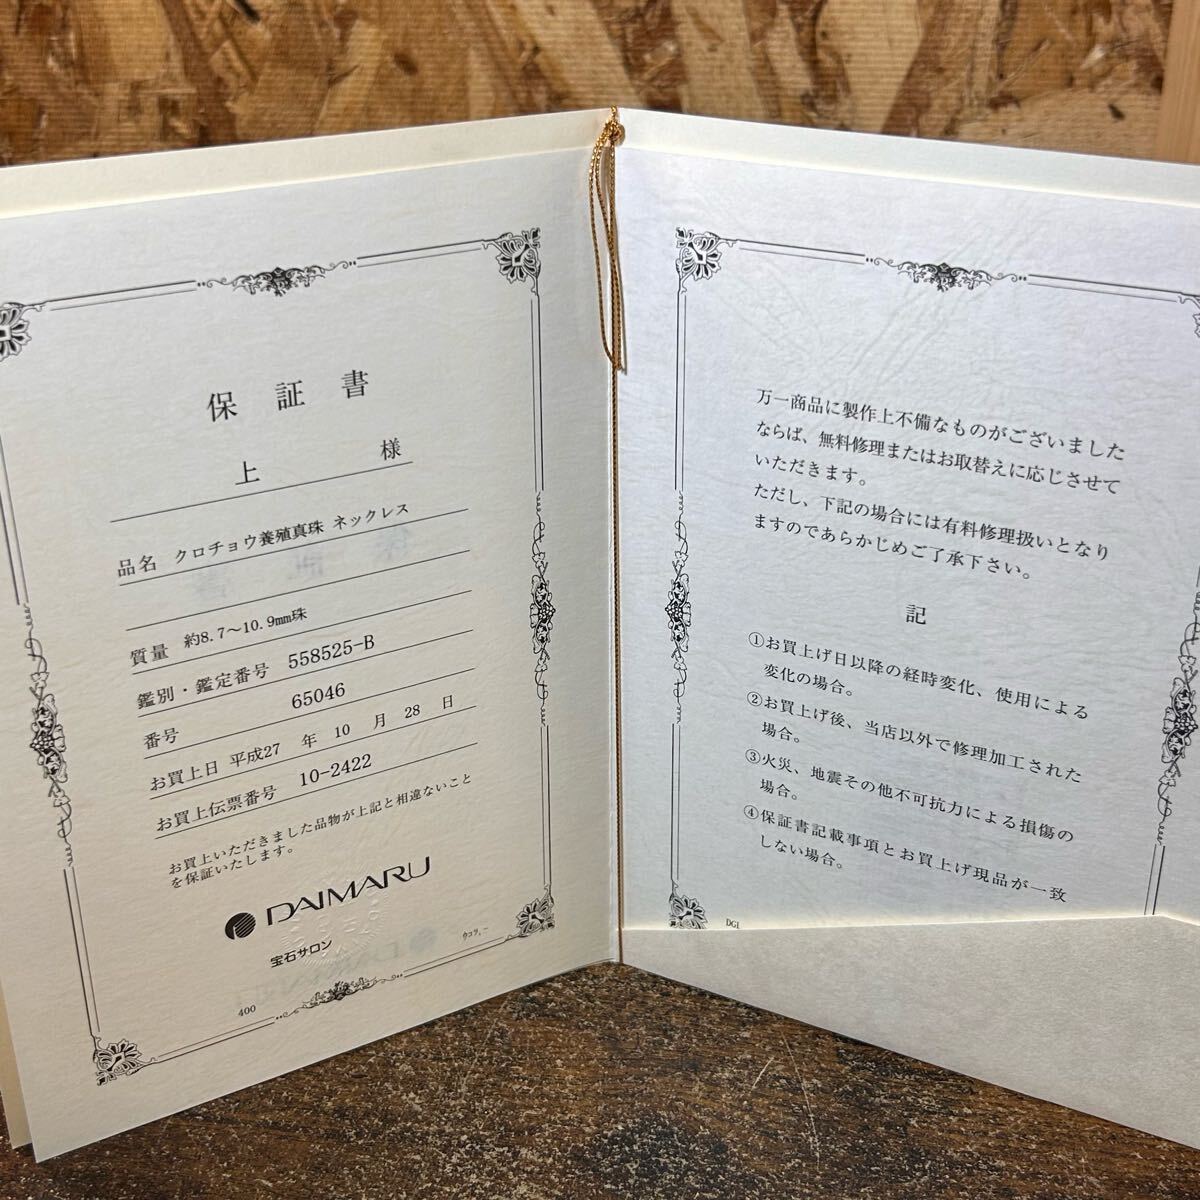 保証書
上 様
品名 クロチョウ養殖真珠 ネックレス
質量 約8.7～10.9mm珠
鑑別・鑑定番号 558525-B
番号 65046
お買上日 平成27 年 10 月 28 日
お買上伝票番号 10-2422
お買上いただきました品物が上記と相違ないこと
を保証いたします。
DAIMARU
宝石サロン
400
万一商品に製作上不備なものがございました
ならば、無料修理またはお取替えに応じさせて
いただきます。
ただし、下記の場合には有料修理扱いとなり
ますのであらかじめご了承下さい。
記
①お買上げ日以降の経時変化、使用による
変化の場合。
②お買上げ後、当店以外で修理加工された
場合。
③火災、地震その他不可抗力による損傷の
場合。
④保証書記載事項とお買上げ現品が一致
しない場合。
DGL